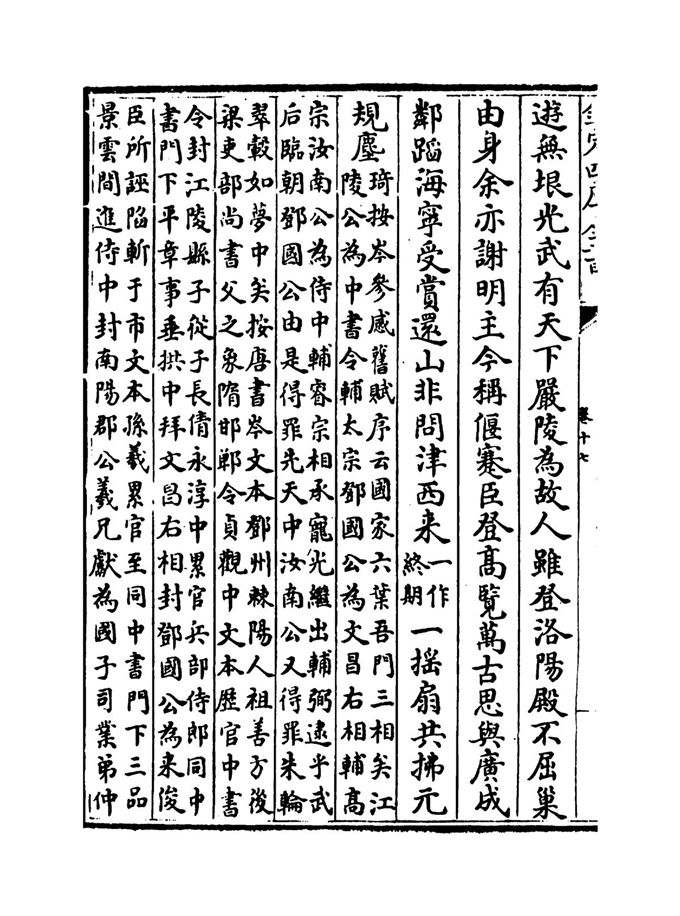 欽定四庫全書
卷十七
遊無垠光武有天下嚴陵為故人雖登洛陽殿不屈巢
由身余亦謝明主今稱偃蹇臣登髙覽萬古思與廣成
鄰蹈海寧受賞還山非問津西来一作終期一揺扇共拂元
規塵
琦按岑參感舊賦序云國家六葉吾門三相矣江
陵公為中書令輔太宗鄧國公為文昌右相輔髙
宗汝南公為侍中輔睿宗相承寵光繼出輔弼逮乎武
后臨朝鄧國公由是得罪先天中汝南公又得罪朱輪
翠轂如夢中矣按唐書岑文本鄧州棘陽人祖善方後
梁吏部尚書父之象隋邯鄲令貞觀中文本歴官中書
令封江陵縣子從子長倩永淳中累官兵部侍郎同中
書門下平章事垂拱中拜文昌右相封鄧國公為来俊
臣所誣陷斬于市文本孫羲累官至同中書門下三品
景雲間進侍中封南陽郡公羲兄獻為國子司業弟仲